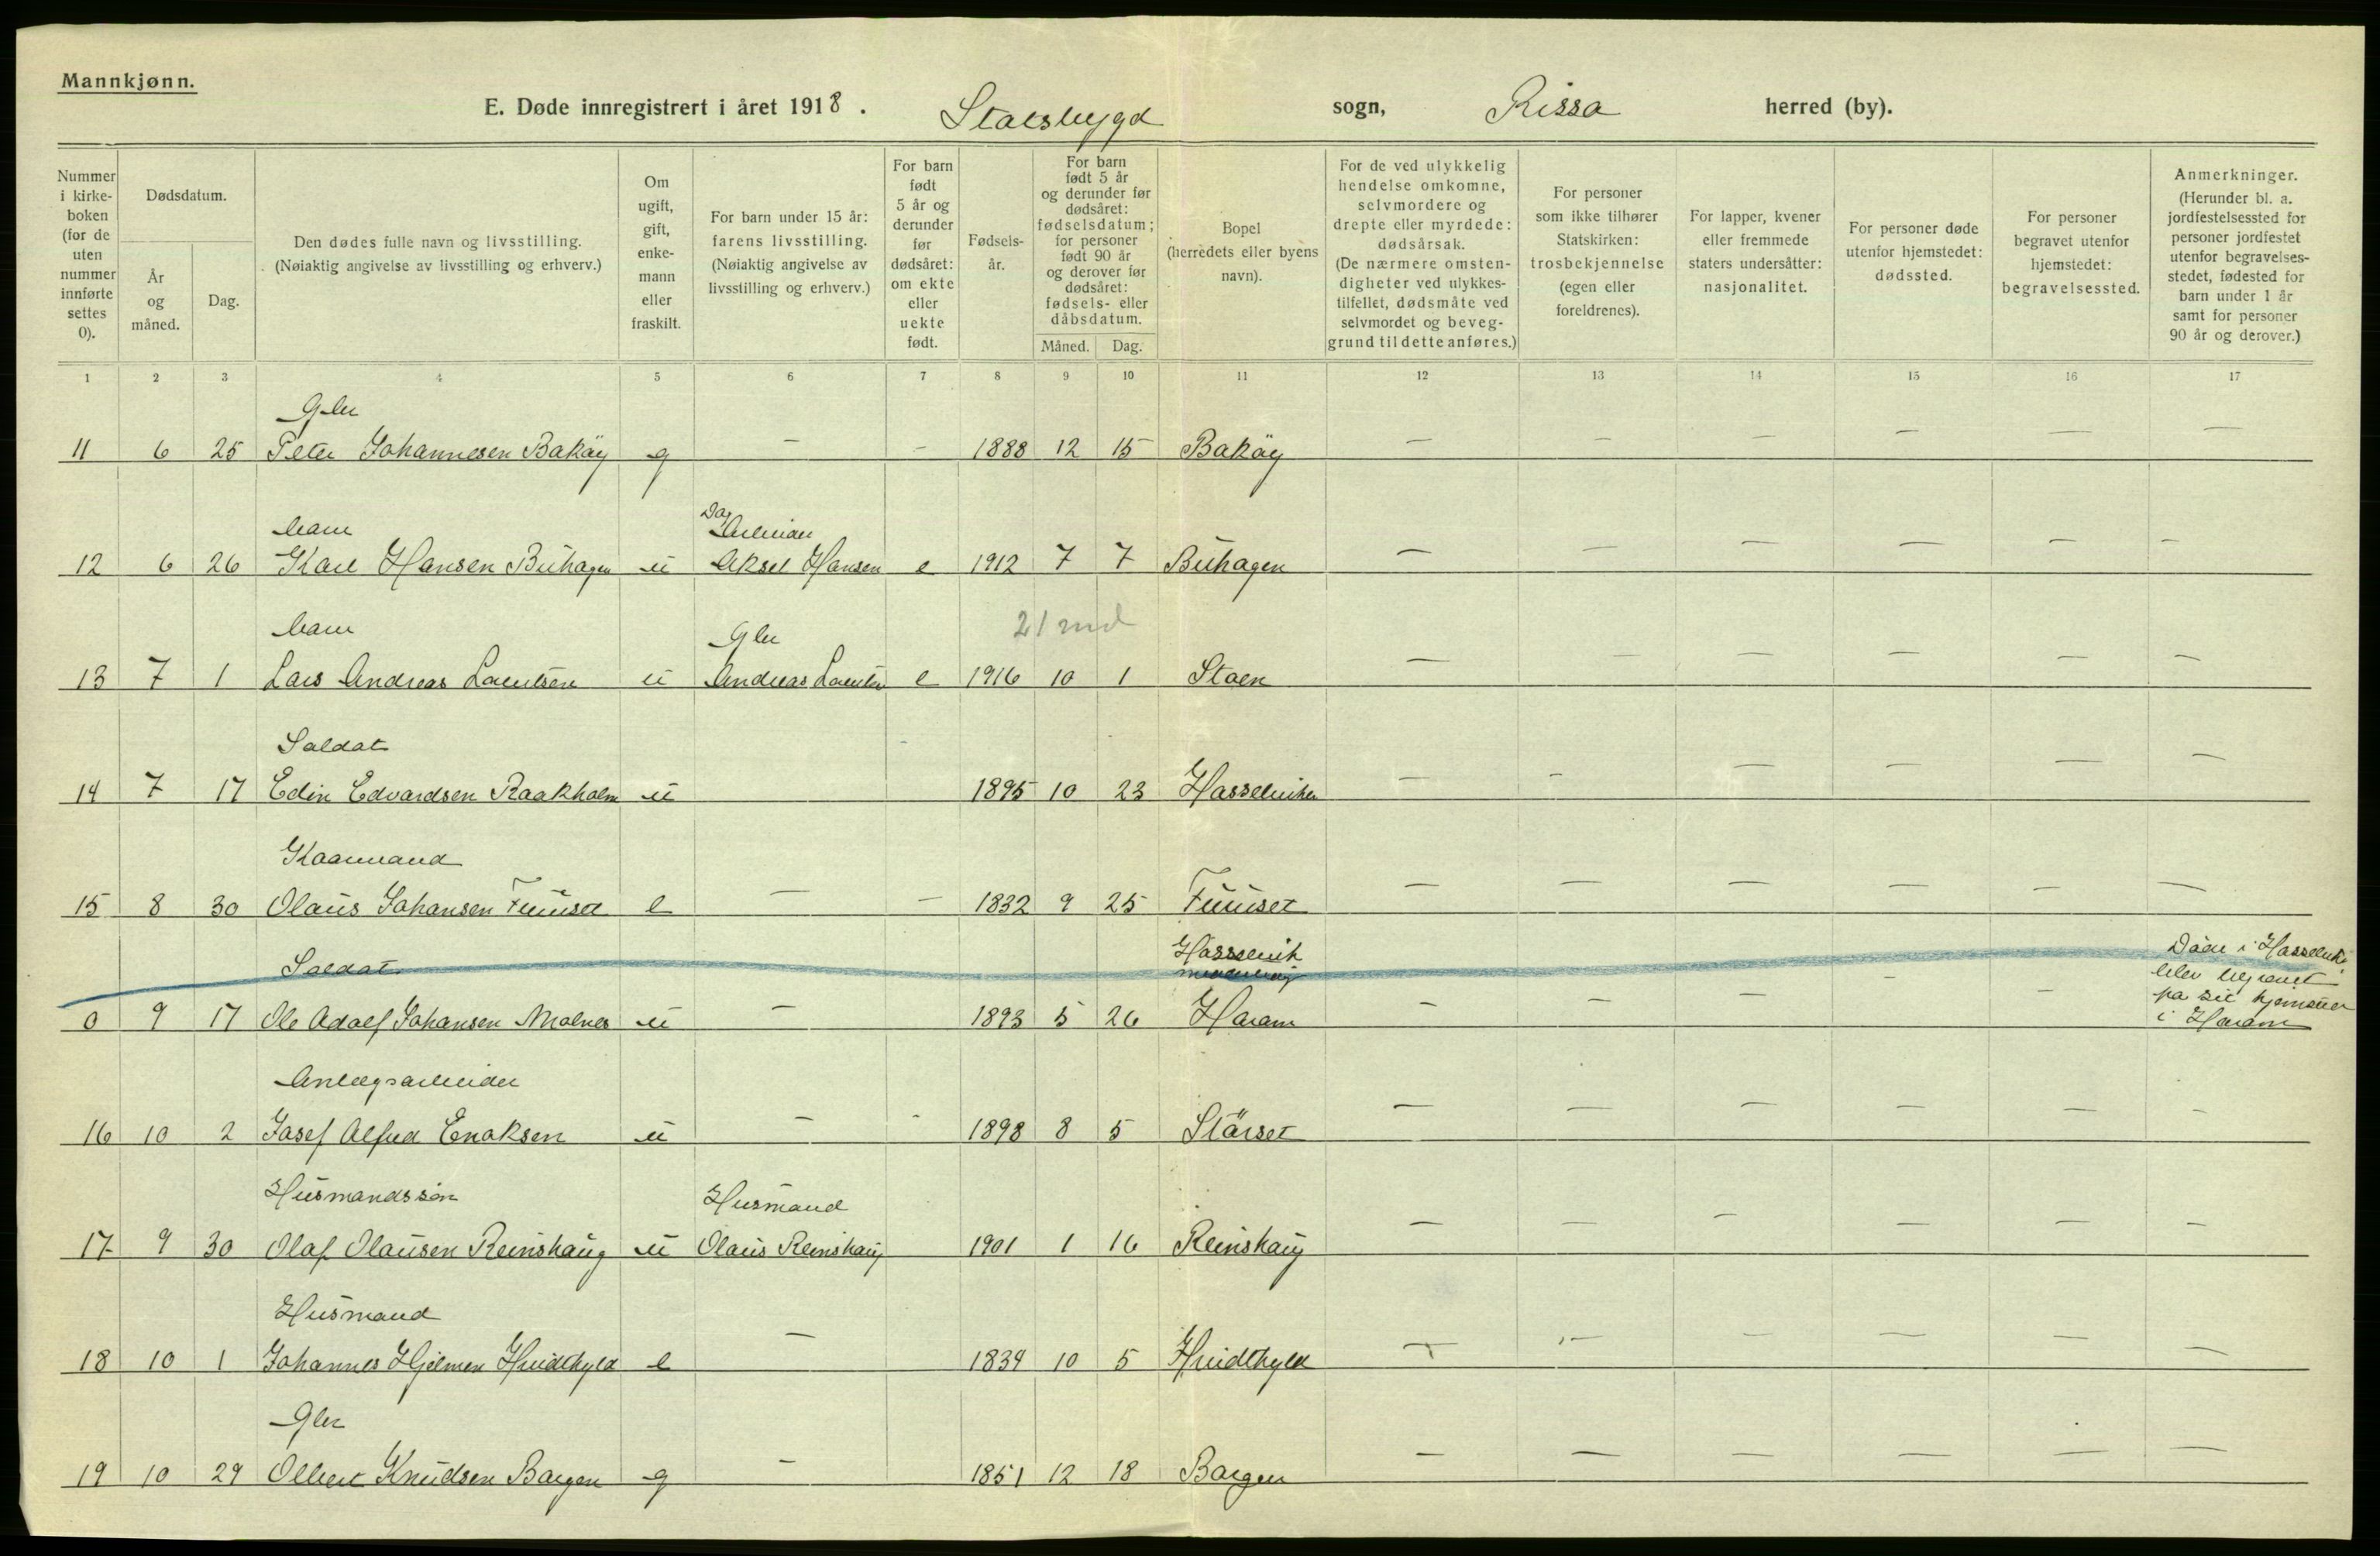 Mannkjønn.
E. Døde innregistrert i året 1918. Stadsbygd sogn, Rissa herred (by).
Nummer i kirke-boken (for de uten nummer innførte settes 0).
Dødsdatum.
År og måned.
Dag.
Den dødes fulle navn og livsstilling. (Nøiaktig angivelse av livsstilling og erhverv.)
Om ugift, gift, enke-mann eller fraskilt.
For barn under 15 år: farens livsstilling. (Nøiaktig angivelse av livsstilling og erhverv.)
For barn født 5 år og derunder før dødsåret: om ekte eller uekte født.
Fødsels-år.
For barn født 5 år og derunder før dødsåret: fødselsdatum; for personer født 90 år og derover før dødsåret: fødsels- eller dåbsdatum.
Måned.
Dag.
Bopel (herredets eller byens navn).
For de ved ulykkelig hendelse omkomne, selvmordere og drepte eller myrdede: dødsårsak. (De nærmere omsten-digheter ved ulykkes-tilfellet, dødsmåte ved selvmordet og beveg-grund til dette anføres.)
For personer som ikke tilhører Statskirken: trosbekjennelse (egen eller foreldrenes).
For lapper, kvener eller fremmede staters undersåtter: nasjonalitet.
For personer døde utenfor hjemstedet: dødssted.
For personer begravet utenfor hjemstedet: begravelsessted.
Anmerkninger. (Herunder bl. a. jordfestelsessted for personer jordfestet utenfor begravelses-stedet, fødested for barn under 1 år samt for personer 90 år og derover.)
1 2 3 4 5 6 7 8 9 10 11 12 13 14 15 16 17
Gbr
11 6 25 Peter Johannesen Bakøy g — — 1888 12 15 Bakøy — — — — — —
barn Dag Arbeider
12 6 26 Karl Hansen Buhagen u Aksel Hansen e 1912 7 7 Buhagen — — — — — —
barn Gbr 21 md
13 7 1 Lars Andreas Larsen u Andreas e 1916 10 1 Staen — — — — — —
Soldat
14 7 17 Edin Edvardsen Raakholm u 1895 10 23 Hasselviken — — — — — —
Kaarmand
15 8 30 Olaus Johansen e — — 1832 9 25 — — — — — —
Soldat Hasselvik
0 9 17 Ole Adolf Johansen Molnes u — 1893 5 26 Haram — — — — —
Døde i Hasselvik
blev begravet
på sit hjemsted
i Haram
Anlægsarbeider
16 10 2 Josef Alfred Enoksen u — - 1898 8 5 Størset — — — — — -
Husmandssøn Husmand
17 9 30 Olaf Olausen Reinshaug u Olaus Reinshaug 1901 1 16 Reinshaug — — — — — —
Husmand
18 10 1 Johannes e — 1834 10 5 — — — — — —
Gbr
19 10 29 Olbert Knudsen Borgen g — 1851 12 18 Borgen — — — — — —